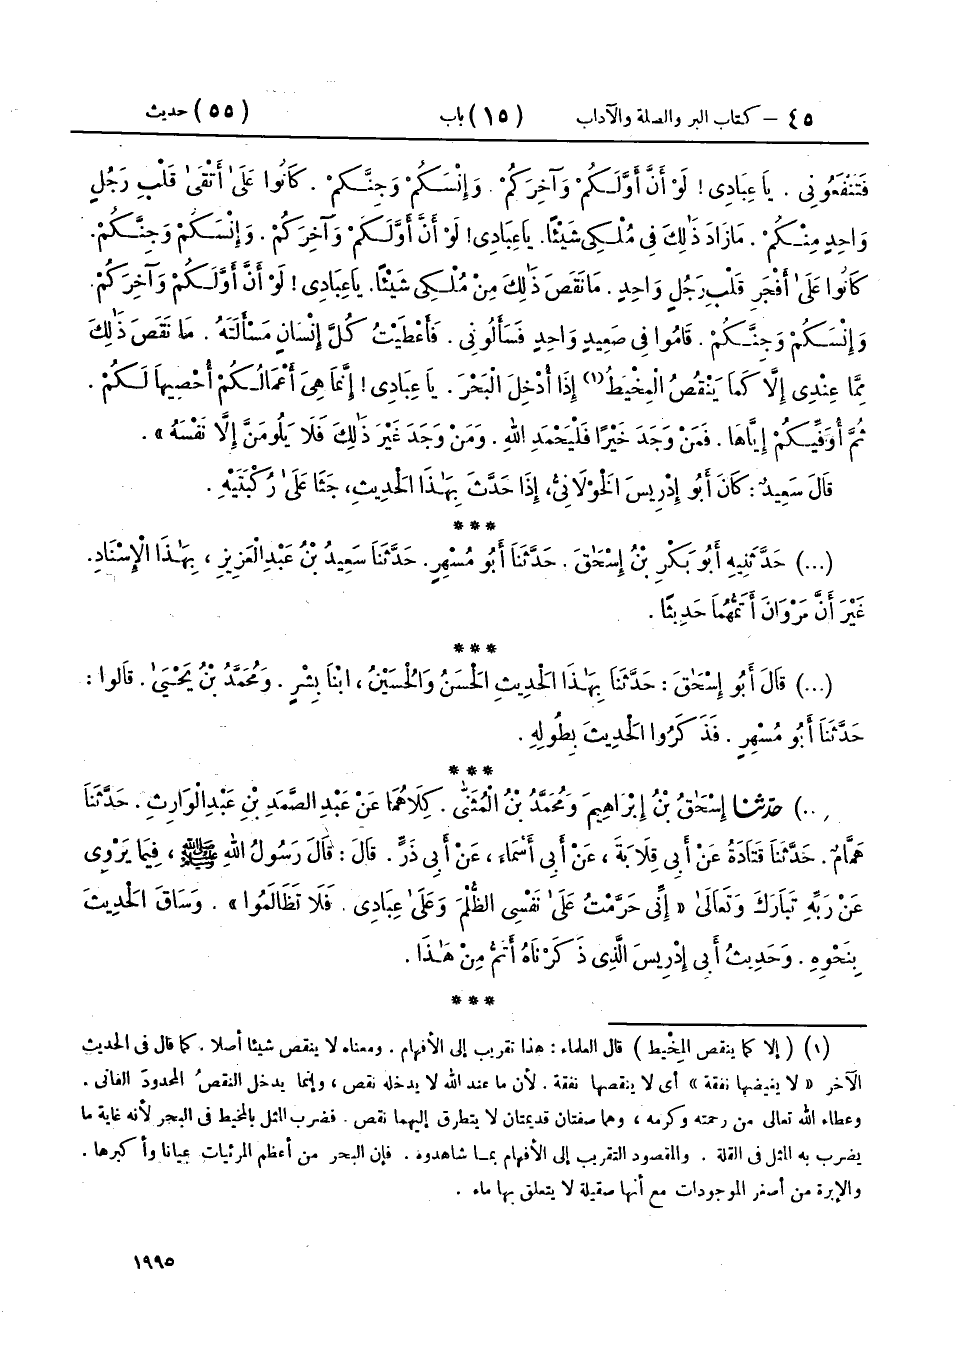 ٤٥ – كتاب البر والصلة والآداب (١٥) باب (٥٥) حديث
فَتَنْفَعُونِى . يَا عِبَادِى ! لَوْ أَنَّ أَوَّلَكُمْ وَآخِرَكُمْ . وَإِنْسَكُمْ وَجِنَّكُمْ . كَانُوا عَلَىٰ أَتْقَىٰ قَلْبِ رَجُلٍ
وَاحِدٍ مِنْكُمْ . مَا زَادَ ذَٰلِكَ فِى مُلْكِى شَيْئًا. يَا عِبَادِى! لَوْ أَنَّ أَوَّلَكُمْ وَآخِرَكُمْ . وَإِنْسَكُمْ وَجِنَّكُمْ.
كَانُوا عَلَىٰ أَفْجَرِ قَلْبِ رَجُلٍ وَاحِدٍ . مَا نَقَصَ ذَٰلِكَ مِنْ مُلْكِى شَيْئًا. يَا عِبَادِى ! لَوْ أَنَّ أَوَّلَكُمْ وَآخِرَكُمْ.
وَإِنْسَكُمْ وَجِنَّكُمْ . قَامُوا فِى صَعِيدٍ وَاحِدٍ فَسَأَلُونِى . فَأَعْطَيْتُ كُلَّ إِنْسَانٍ مَسْأَلَتَهُ . مَا نَقَصَ ذَٰلِكَ
مِمَّا عِنْدِى إِلَّا كَمَا يَنْقُصُ الْمِخْيَطُ(١) إِذَا أُدْخِلَ الْبَحْرَ . يَا عِبَادِى ! إِنَّمَا هِىَ أَعْمَالُكُمْ أُحْصِيهَا لَكُمْ .
ثُمَّ أُوَفِّيكُمْ إِيَّاهَا . فَمَنْ وَجَدَ خَيْرًا فَلْيَحْمَدِ اللهَ . وَمَنْ وَجَدَ غَيْرَ ذَٰلِكَ فَلَا يَلُومَنَّ إِلَّا نَفْسَهُ » .
قَالَ سَعِيدٌ : كَانَ أَبُو إِدْرِيسَ الْخَوْلَانِىُّ، إِذَا حَدَّثَ بِهَٰذَا الْحَدِيثِ، جَثَا عَلَىٰ رُكْبَتَيْهِ .
***
(...) حَدَّثَنِيهِ أَبُو بَكْرِ بْنُ إِسْحَٰقَ . حَدَّثَنَا أَبُو مُسْهِرٍ. حَدَّثَنَا سَعِيدُ بْنُ عَبْدِ الْعَزِيزِ ، بِهَٰذَا الْإِسْنَادِ.
غَيْرَ أَنَّ مَرْوَانَ أَتَمُّهُمَا حَدِيثًا .
***
(...) قَالَ أَبُو إِسْحَٰقَ : حَدَّثَنَا بِهَٰذَا الْحَدِيثِ الْحَسَنُ وَالْحُسَيْنُ ، ابْنَا بِشْرٍ . وَمُحَمَّدُ بْنُ يَحْيَىٰ . قَالُوا :
حَدَّثَنَا أَبُو مُسْهِرٍ . فَذَكَرُوا الْحَدِيثَ بِطُولِهِ .
***
(...) حدّثنا إِسْحَٰقُ بْنُ إِبْرَاهِيمَ وَمُحَمَّدُ بْنُ الْمُثَنَّىٰ . كِلَاهُمَا عَنْ عَبْدِ الصَّمَدِ بْنِ عَبْدِ الْوَارِثِ . حَدَّثَنَا
هَمَّامٌ . حَدَّثَنَا قَتَادَةُ عَنْ أَبِى قِلَابَةَ ، عَنْ أَبِى أَسْمَاءَ ، عَنْ أَبِى ذَرٍّ . قَالَ : قَالَ رَسُولُ اللهِ ﷺ ، فِيمَا يَرْوِى
عَنْ رَبِّهِ تَبَارَكَ وَتَعَالَىٰ « إِنِّى حَرَّمْتُ عَلَىٰ نَفْسِى الظُّلْمَ وَعَلَىٰ عِبَادِى . فَلَا تَظَالَمُوا » . وَسَاقَ الْحَدِيثَ
بِنَحْوِهِ . وَحَدِيثُ أَبِى إِدْرِيسَ الَّذِى ذَكَرْنَاهُ أَتَمُّ مِنْ هَٰذَا .
***
(١) ( إلا كما ينقص المِخْيط ) قال العلماء : هذا تقريب إلى الأفهام . ومعناه لا ينقص شيئا أصلا . كما قال فى الحديث
الآخر « لا يغيضها نفقة » أى لا ينقصها نفقة . لأن ما عند الله لا يدخله نقص ، وإنما يدخل النقصُ المحدودَ الفانى .
وعطاء الله تعالى من رحمته وكرمه ، وهما صفتان قديمتان لا يتطرق إليهما نقص . فضرب المثل بالمخيط فى البحر لأنه غاية ما
يضرب به المثل فى القلة . والمقصود التقريب إلى الأفهام بما شاهدوه . فإن البحر من أعظم المرئيات عيانا وأكبرها .
والإبرة من أصغر الموجودات مع أنها صقيلة لا يتعلق بها ماء .
١٩٩٥